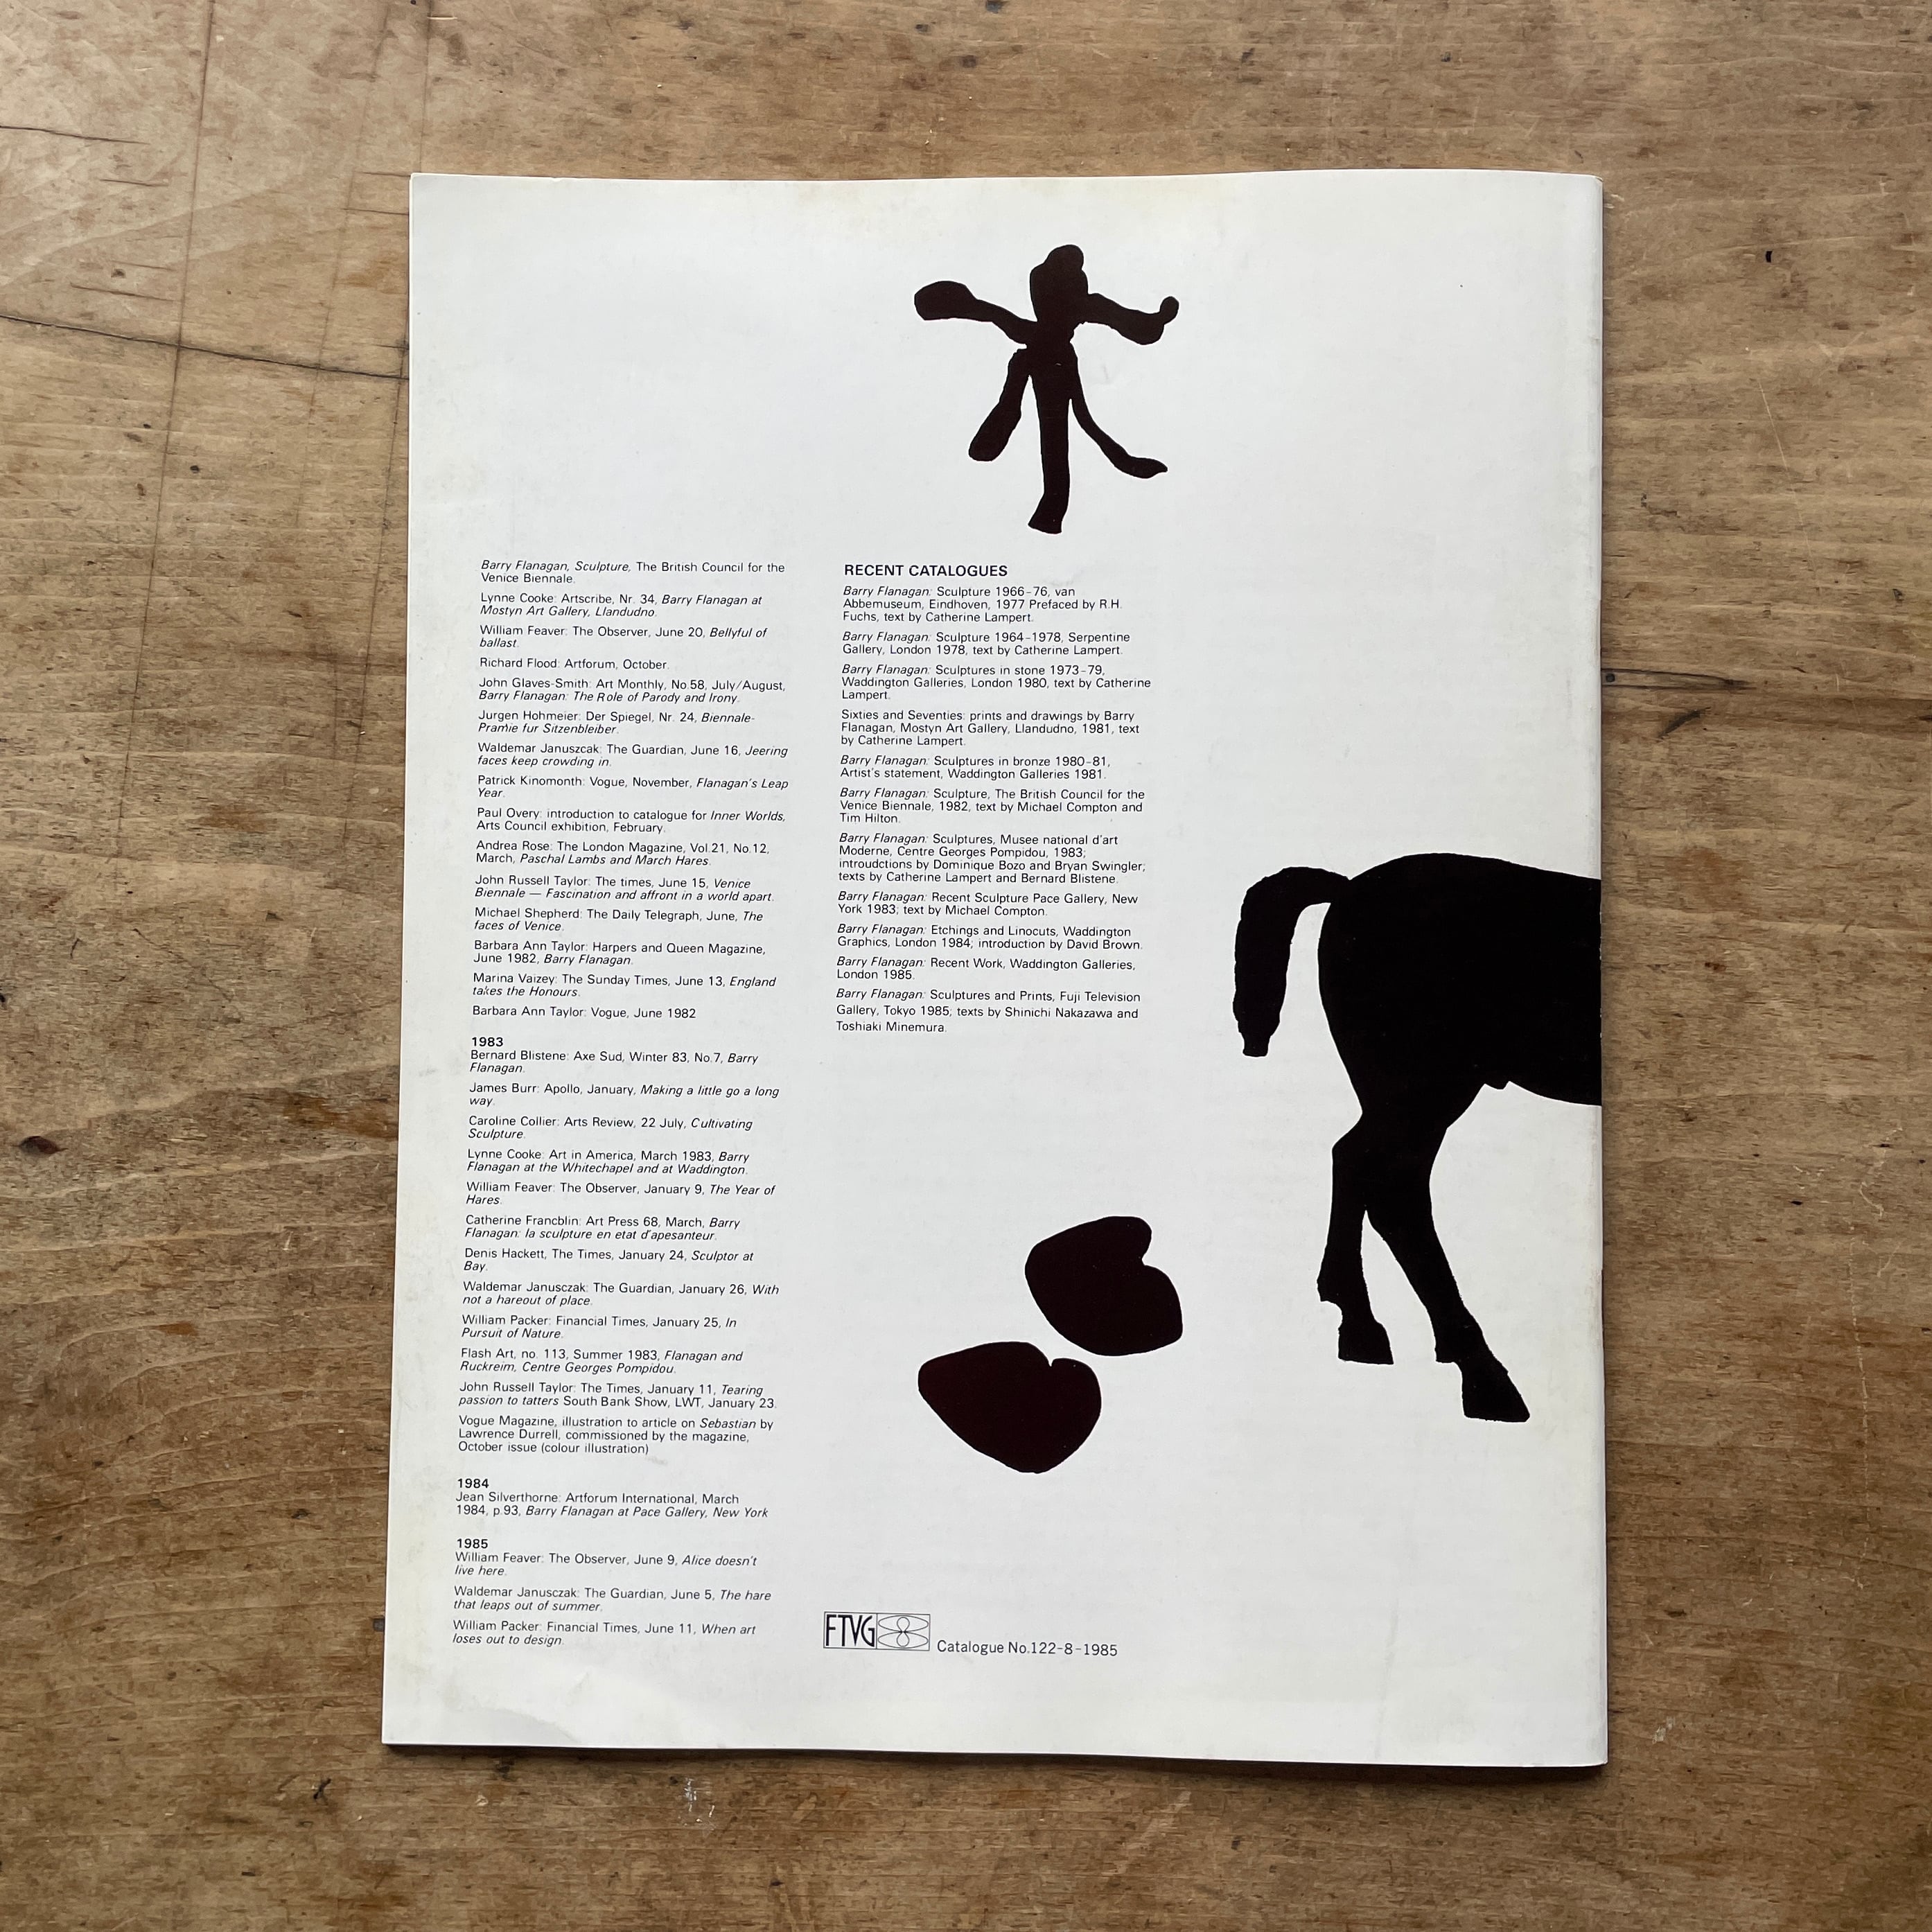 Barry Flanagan, Sculpture, The British Council for the
Venice Biennale.
Lynne Cooke: Artscribe, Nr. 34, Barry Flanagan at
Mostyn Art Gallery, Llandudno.
William Feaver: The Observer, June 20, Bellyful of
ballast.
Richard Flood: Artforum, October.
John Glaves-Smith: Art Monthly, No.58, July/August,
Barry Flanagan: The Role of Parody and Irony.
Jurgen Hohmeier: Der Spiegel, Nr. 24, Biennale-
Pramie fur Sitzenbleiber.
Waldemar Januszcak: The Guardian, June 16, Jeering
faces keep crowding in.
Patrick Kinomonth: Vogue, November, Flanagan's Leap
Year.
Paul Overy: introduction to catalogue for Inner Worlds,
Arts Council exhibition, February.
Andrea Rose: The London Magazine, Vol.21, No.12,
March, Paschal Lambs and March Hares.
John Russell Taylor: The times, June 15, Venice
Biennale — Fascination and affront in a world apart.
Michael Shepherd: The Daily Telegraph, June, The
faces of Venice.
Barbara Ann Taylor: Harpers and Queen Magazine,
June 1982, Barry Flanagan.
Marina Vaizey: The Sunday Times, June 13, England
takes the Honours.
Barbara Ann Taylor: Vogue, June 1982
1983
Bernard Blistene: Axe Sud, Winter 83, No.7, Barry
Flanagan.
James Burr: Apollo, January, Making a little go a long
way.
Caroline Collier: Arts Review, 22 July, Cultivating
Sculpture.
Lynne Cooke: Art in America, March 1983, Barry
Flanagan at the Whitechapel and at Waddington.
William Feaver: The Observer, January 9, The Year of
Hares.
Catherine Francblin: Art Press 68, March, Barry
Flanagan: la sculpture en etat d'apesanteur.
Denis Hackett, The Times, January 24, Sculptor at
Bay.
Waldemar Janusczak: The Guardian, January 26, With
not a hareout of place.
William Packer: Financial Times, January 25, In
Pursuit of Nature.
Flash Art, no. 113, Summer 1983, Flanagan and
Ruckreim, Centre Georges Pompidou.
John Russell Taylor: The Times, January 11, Tearing
passion to tatters South Bank Show, LWT, January 23.
Vogue Magazine, illustration to article on Sebastian by
Lawrence Durrell, commissioned by the magazine,
October issue (colour illustration)
1984
Jean Silverthorne: Artforum International, March
1984, p.93, Barry Flanagan at Pace Gallery, New York
1985
William Feaver: The Observer, June 9, Alice doesn't
live here.
Waldemar Janusczak: The Guardian, June 5, The hare
that leaps out of summer.
William Packer: Financial Times, June 11, When art
loses out to design.
RECENT CATALOGUES
Barry Flanagan: Sculpture 1966-76, van
Abbemuseum, Eindhoven, 1977 Prefaced by R.H.
Fuchs, text by Catherine Lampert.
Barry Flanagan: Sculpture 1964-1978, Serpentine
Gallery, London 1978, text by Catherine Lampert.
Barry Flanagan: Sculptures in stone 1973-79,
Waddington Galleries, London 1980, text by Catherine
Lampert.
Sixties and Seventies: prints and drawings by Barry
Flanagan, Mostyn Art Gallery, Llandudno, 1981, text
by Catherine Lampert.
Barry Flanagan: Sculptures in bronze 1980-81,
Artist's statement, Waddington Galleries 1981.
Barry Flanagan: Sculpture, The British Council for the
Venice Biennale, 1982, text by Michael Compton and
Tim Hilton.
Barry Flanagan: Sculptures, Musee national d'art
Moderne, Centre Georges Pompidou, 1983;
introudctions by Dominique Bozo and Bryan Swingler;
texts by Catherine Lampert and Bernard Blistene.
Barry Flanagan: Recent Sculpture Pace Gallery, New
York 1983; text by Michael Compton.
Barry Flanagan: Etchings and Linocuts, Waddington
Graphics, London 1984; introduction by David Brown.
Barry Flanagan: Recent Work, Waddington Galleries,
London 1985.
Barry Flanagan: Sculptures and Prints, Fuji Television
Gallery, Tokyo 1985; texts by Shinichi Nakazawa and
Toshiaki Minemura.
FTVG Catalogue No.122-8-1985